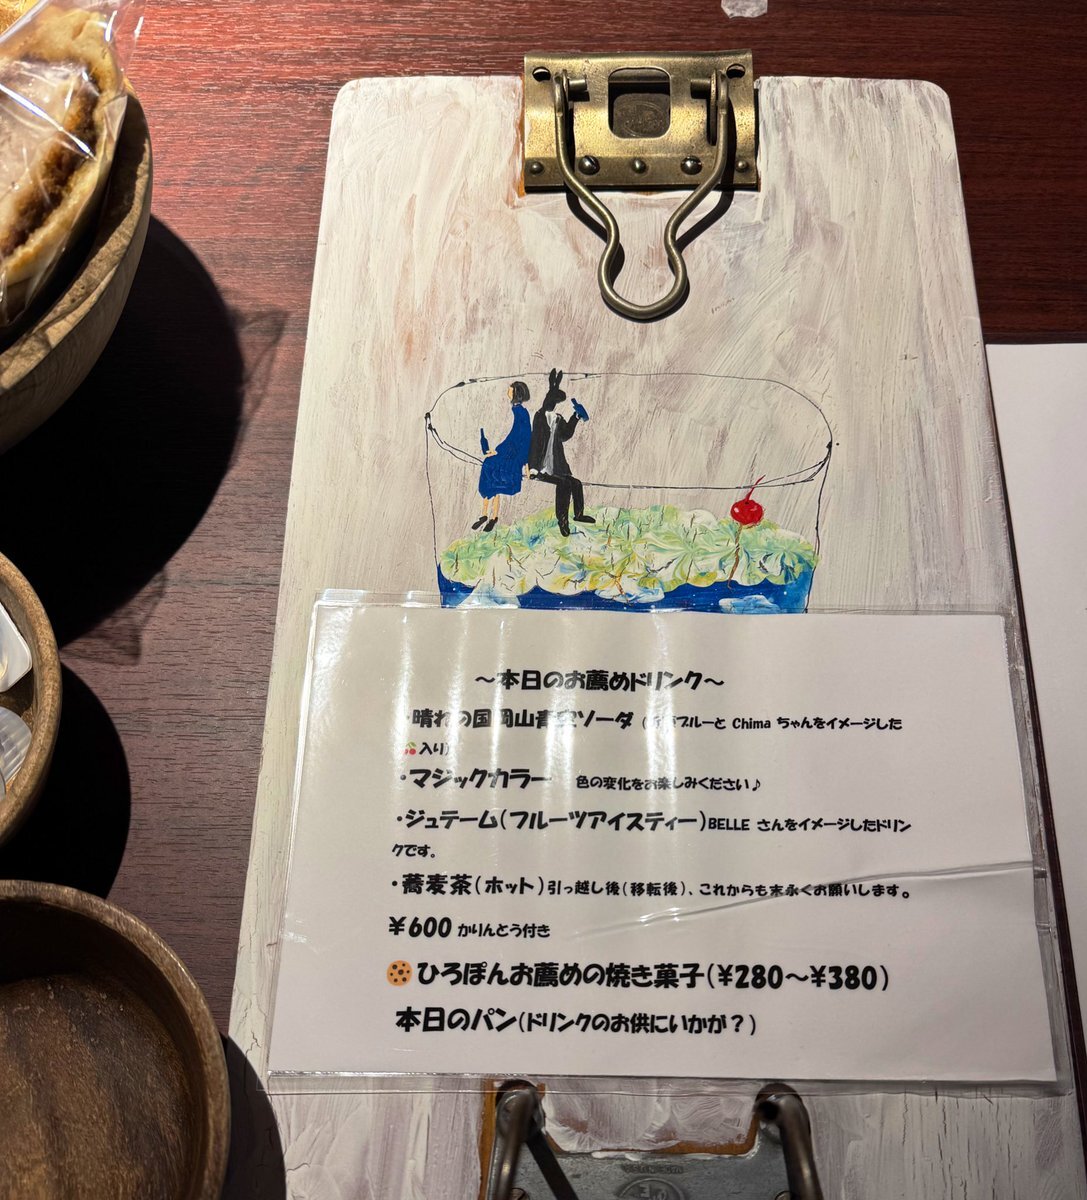 ～本日のお薦めドリンク～
・晴れの国岡山青空ソーダ ブルーと Chima ちゃんをイメージした
🍒入り)
・マジックカラー 色の変化をお楽しみください♪
・ジュテーム(フルーツアイスティー)BELLE さんをイメージしたドリン
クです。
・蕎麦茶(ホット)引っ越し後(移転後)、これからも末永くお願いします。
￥600 かりんとう付き
🍪ひろぽんお薦めの焼き菓子(￥280～￥380)
本日のパン(ドリンクのお供にいかが？)